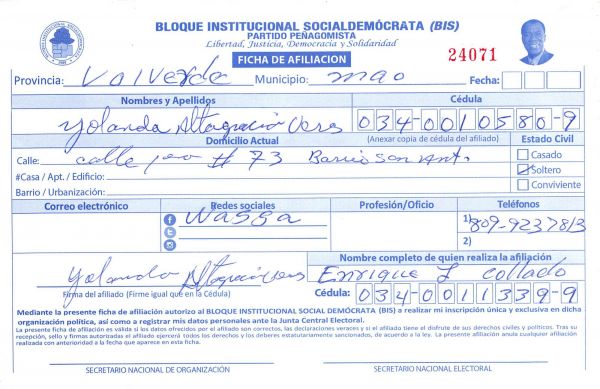 BLOQUE INSTITUCIONAL SOCIALDEMÓCRATA (BIS)
PARTIDO PEÑAGOMISTA
Libertad, Justicia, Democracia y Solidaridad
FICHA DE AFILIACION
24071
Provincia: Valverde Municipio: mao Fecha:
Nombres y Apellidos Cédula
Yolanda Altagracia 034-0010580-9
Domicilio Actual (Anexar copia de cédula del afiliado) Estado Civil
Calle: calle # 73 Barrio San Ant. Casado
#Casa / Apt. / Edificio: Soltero
Barrio / Urbanización: Conviviente
Correo electrónico Redes sociales Profesión/Oficio Teléfonos
1) 809-9237813
2)
Nombre completo de quien realiza la afiliación
Yolanda Altagracia Enrique L Collado
Firma del afiliado (Firme igual que en la Cédula) Cédula: 034-0011339-9
Mediante la presente ficha de afiliación autorizo al BLOQUE INSTITUCIONAL SOCIAL DEMÓCRATA (BIS) a realizar mi inscripción única y exclusiva en dicha
organización política, así como a registrar mis datos personales ante la Junta Central Electoral.
La presente ficha de afiliación es válida si los datos ofrecidos por el afiliado son correctos, las declaraciones veraces y si el afiliado tiene el disfrute de sus derechos civiles y políticos. Tras su
recepción, sello y firmas autorizadas el afiliado ejercerá todos los derechos y los deberes estatutariamente sancionados, de acuerdo a la ley. La presente afiliación anula cualquier afiliación
realizada con anterioridad a la fecha que aparece en esta ficha.
SECRETARIO NACIONAL DE ORGANIZACIÓN SECRETARIO NACIONAL ELECTORAL